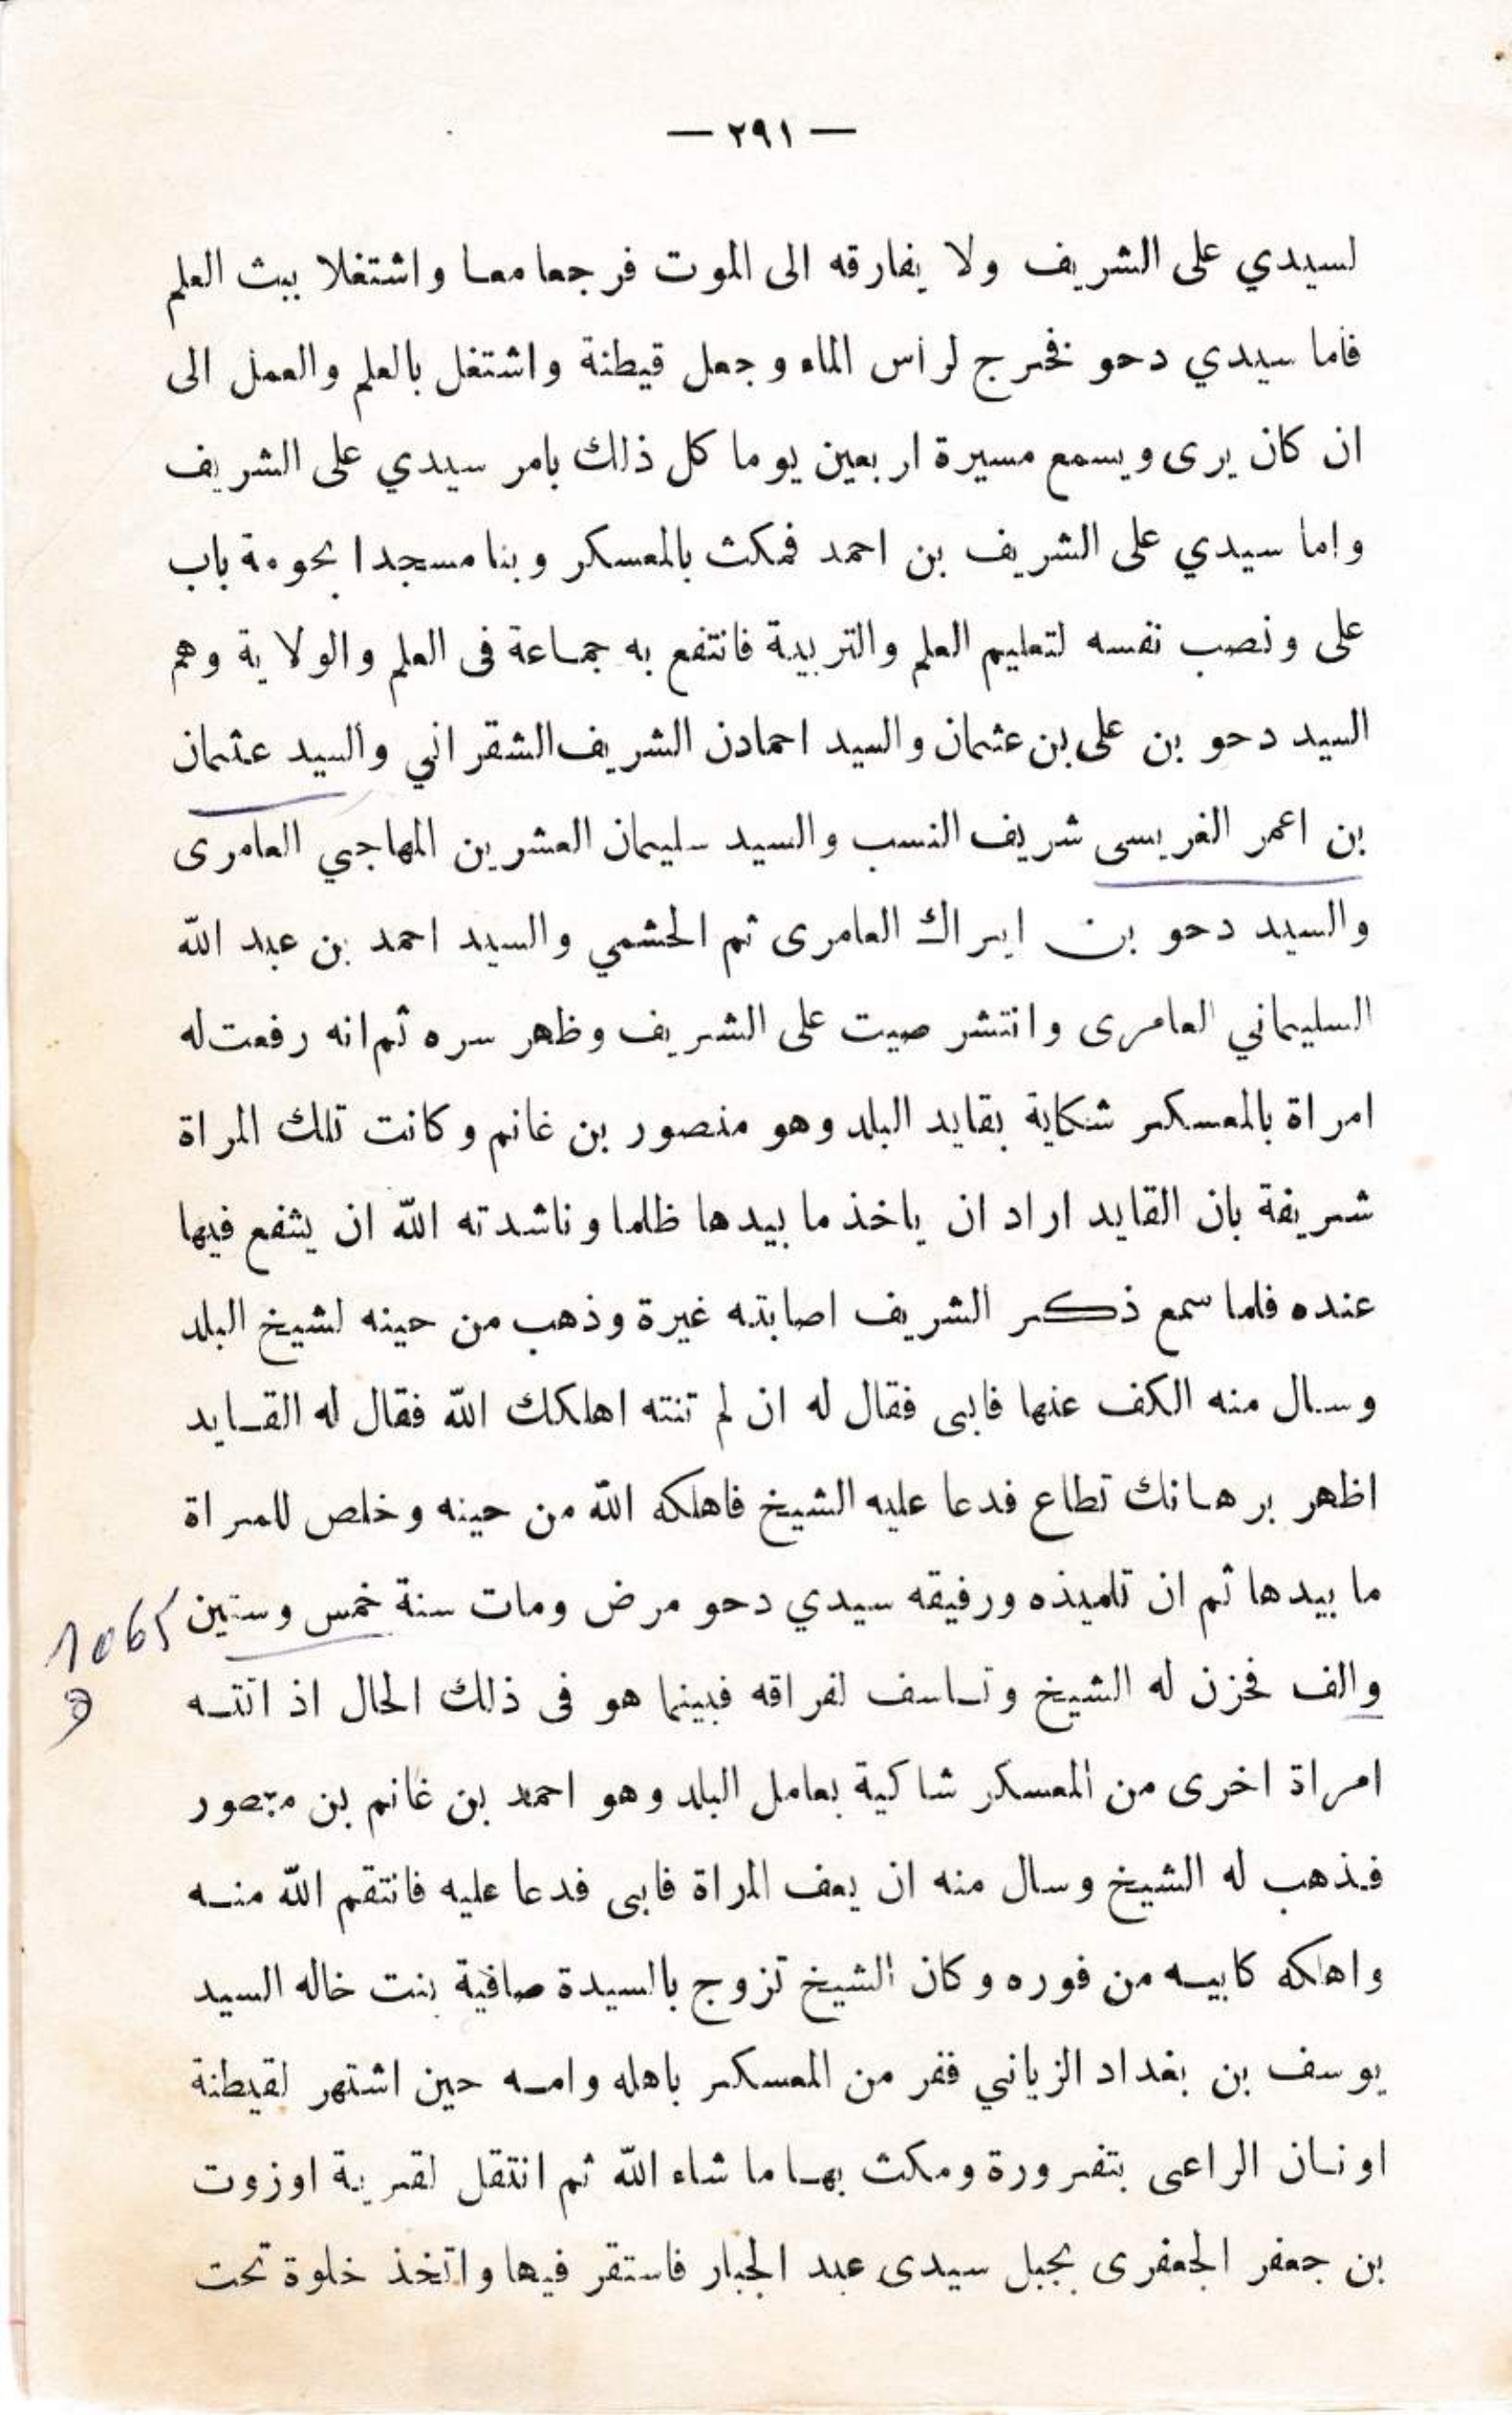 — ٢٩١ —
لسيدي على الشريف ولا يفارقه الى الموت فرجعا معا واشتغلا ببث العلم
فاما سيدي دحو فخرج لرأس الماء وجعل قيطنة واشتغل بالعلم والعمل الى
ان كان يرى ويسمع مسيرة اربعين يوما كل ذلك بامر سيدي على الشريف
واما سيدي على الشريف بن احمد فمكث بالمعسكر وبنا مسجدا بحومة باب
على ونصب نفسه لتعليم العلم والتربية فانتفع به جماعة فى العلم والولاية وهم
السيد دحو بن على بن عثمان والسيد احمادن الشريف الشقراني والسيد عثمان
بن اعمر الغريسى شريف النسب والسيد سليمان العشرين المهاجي العامرى
والسيد دحو بن ايراك العامرى ثم الحشمي والسيد احمد بن عبد الله
السليماني العامرى وانتشر صيت على الشريف وظهر سره ثم انه رفعت له
امراة بالمعسكر شكاية بقايد البلد وهو منصور بن غانم وكانت تلك المراة
شريفة بان القايد اراد ان ياخذ ما بيدها ظلما وناشدته الله ان يشفع فيها
عنده فلما سمع ذكر الشريف اصابته غيرة وذهب من حينه لشيخ البلد
وسال منه الكف عنها فابى فقال له ان لم تنته اهلكك الله فقال له القايد
اظهر برهانك تطاع فدعا عليه الشيخ فاهلكه الله من حينه وخلص للمراة
ما بيدها ثم ان تلميذه ورفيقه سيدي دحو مرض ومات سنة خمس وستين
1065
والف فحزن له الشيخ وتاسف لفراقه فبينما هو فى ذلك الحال اذ اتته
امراة اخرى من المعسكر شاكية بعامل البلد وهو احمد بن غانم بن منصور
فذهب له الشيخ وسال منه ان يعف المراة فابى فدعا عليه فانتقم الله منه
واهلكه كابيه من فوره وكان الشيخ تزوج بالسيدة صافية بنت خاله السيد
يوسف بن بغداد الزياني ففر من المعسكر باهله وامه حين اشتهر لقيطنة
اونان الراعى بتفرورة ومكث بها ما شاء الله ثم انتقل لقرية اوزوت
بن جعفر الجعفرى بجبل سيدى عبد الجبار فاستقر فيها واتخذ خلوة تحت